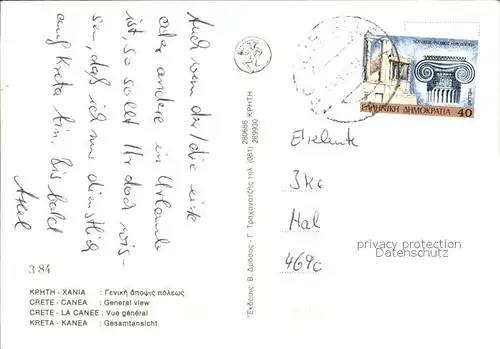 Auch wenn der/die eine
oder andere in Urlaub
ist, so sollt Ihr doch wis-
sen, daß ich nur dienstlich
auf Kreta bin. Bis bald
Axel
384
ΚΡΗΤΗ - ΧΑΝΙΑ : Γενική άποψις πόλεως
CRETE - CANEA : General view
CRETE - LA CANEE : Vue général
KRETA - KANEA : Gesamtansicht
"Εκδοσις: Β. Δρόσος - Γ. Τραχανατζής τηλ. (081) 280686 289930 ΚΡΗΤΗ
ΕΛΛΗΝΙΚΗ ΔΗΜΟΚΡΑΤΙΑ 40
3Kc
Hal
469c
privacy protection
Datenschutz